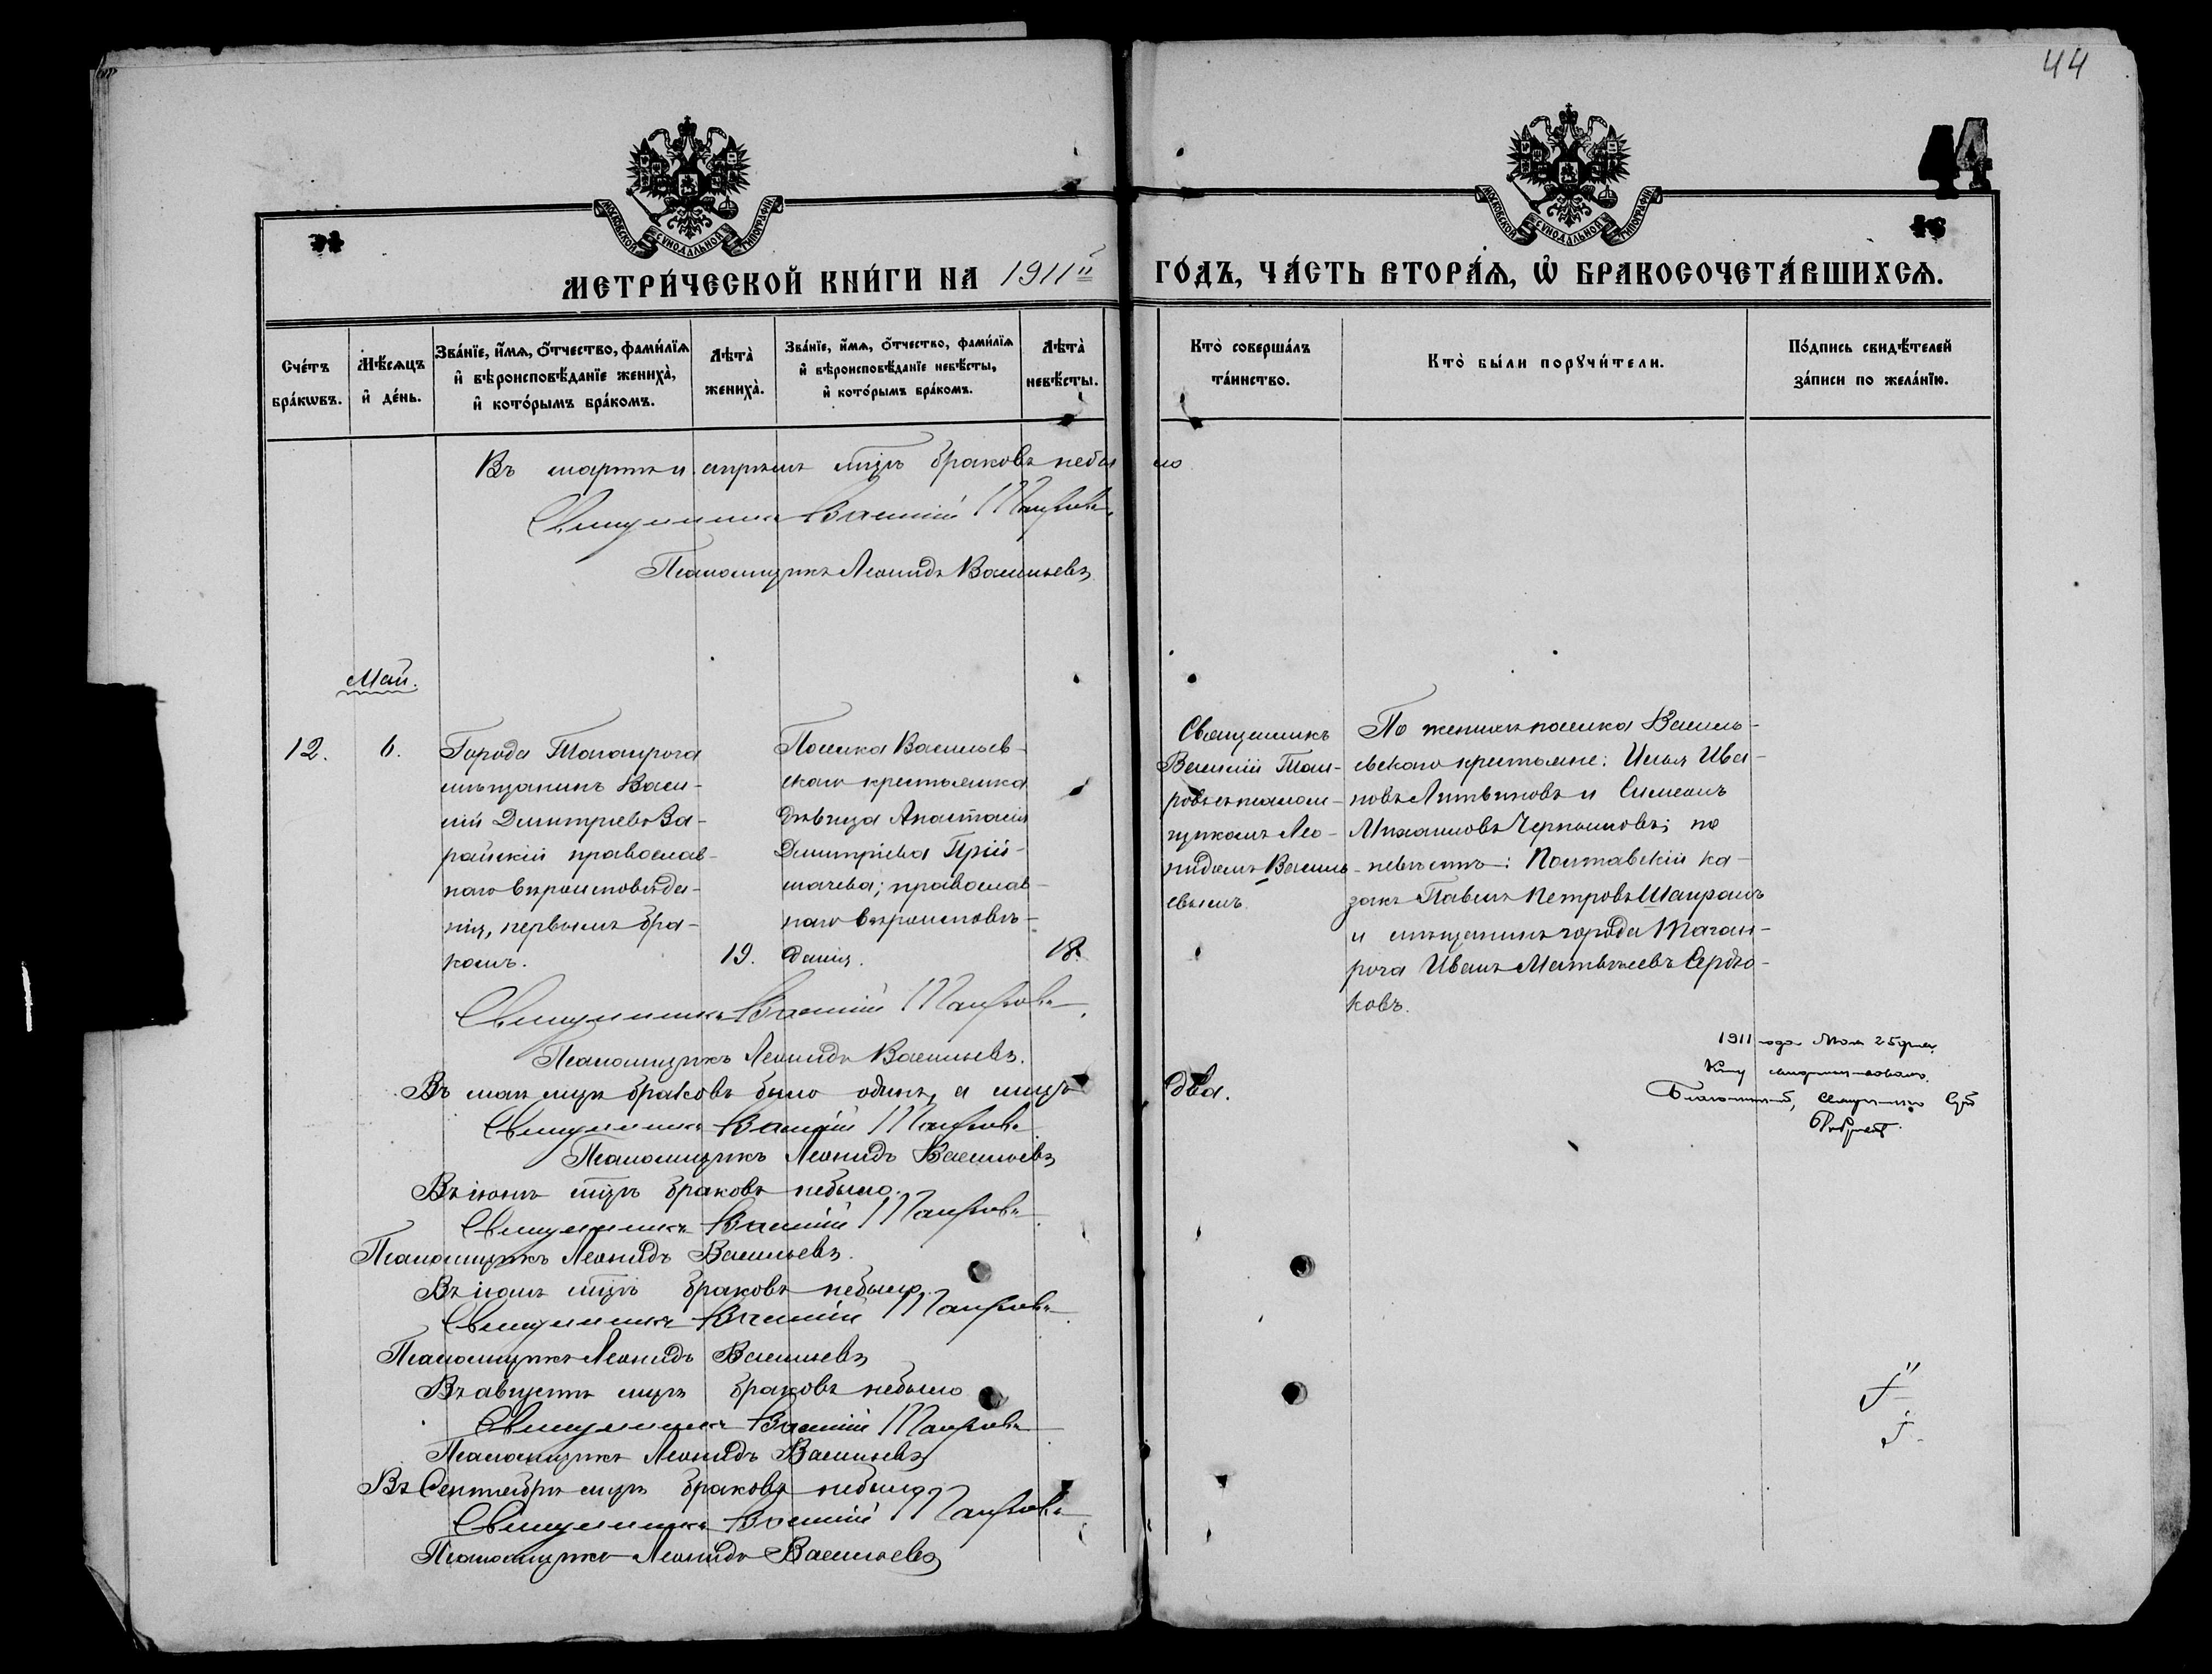 44
МОСКОВСКОЙ СУНОДАЛЬНОЙ ТИПОГРАФІИ
МОСКОВСКОЙ СУНОДАЛЬНОЙ ТИПОГРАФІИ
МЕТРИ́ЧЕСКОЙ КНИ́ГИ НА 1911й ГО́ДЪ, ЧА́СТЬ ВТОРА́Ѧ, Ѡ҆ БРАКОСОЧЕТА́ВШИХСѦ.
Сче́тъ бра́кѡвъ.
Мѣ́сѧцъ и҆ де́нь.
Зва́нїе, и҆́мѧ, ѻ҆́тчество, фами́лїѧ и҆ вѣроисповѣ́данїе жениха̀, и҆ кото́рымъ бра́комъ.
Лѣта̀ жениха̀.
Зва́нїе, и҆́мѧ, ѻ҆́тчество, фами́лїѧ и҆ вѣроисповѣ́данїе невѣ́сты, и҆ кото́рымъ бра́комъ.
Лѣта̀ невѣ́сты.
Кто̀ соверша́лъ та́инство.
Кто̀ бы́ли порꙋчи́тели.
По́дпись свидѣ́телей за́писи по жела́нїю.
Въ мартѣ и апрѣлѣ мцѣ браковъ небыло
Священникъ Василій Таировъ
Псаломщикъ Леонидъ Васильевъ
Май.
12.
6.
Города Таганрога
мѣщанинъ Васи-
лій Димитріевъ За-
райскій православ-
наго вѣроисповѣда-
нія, первымъ бра-
комъ.
19.
Поселка Васильев-
скаго крестьянка
дѣвица Анастасія
Димитріева Прій-
мачева; православ-
наго вѣроисповѣ-
данія.
18.
Священникъ
Василій Таи-
ровъ съ псалом-
щикомъ Лео-
нидомъ Василь-
евымъ.
По женихѣ поселка Василь-
евскаго крестьяне: Илья Ива-
новъ Литвиновъ и Симеонъ
Михаиловъ Черномоновъ; по
невѣстѣ: Полтавскій ка-
закъ Павелъ Петровъ Шапрамъ
и мѣщанинъ города Таган-
рога Иванъ Матвѣевъ Сердю-
ковъ.
Священникъ Василій Таировъ
Псаломщикъ Леонидъ Васильевъ.
Въ маѣ мцѣ браковъ было одинъ, а лицъ два.
Священникъ Василій Таировъ
Псаломщикъ Леонидъ Васильевъ
1911 года Мая 25 дня
Благочинный, Священникъ
Въ іюнѣ мцѣ браковъ небыло.
Священникъ Василій Таировъ
Псаломщикъ Леонидъ Васильевъ.
Въ іюлѣ мцѣ браковъ небыло.
Священникъ Василій Таировъ
Псаломщикъ Леонидъ Васильевъ
Въ августѣ мцѣ браковъ небыло
Священникъ Василій Таировъ
Псаломщикъ Леонидъ Васильевъ
Въ Сентябрѣ мцѣ браковъ небыло
Священникъ Василій Таировъ
Псаломщикъ Леонидъ Васильевъ